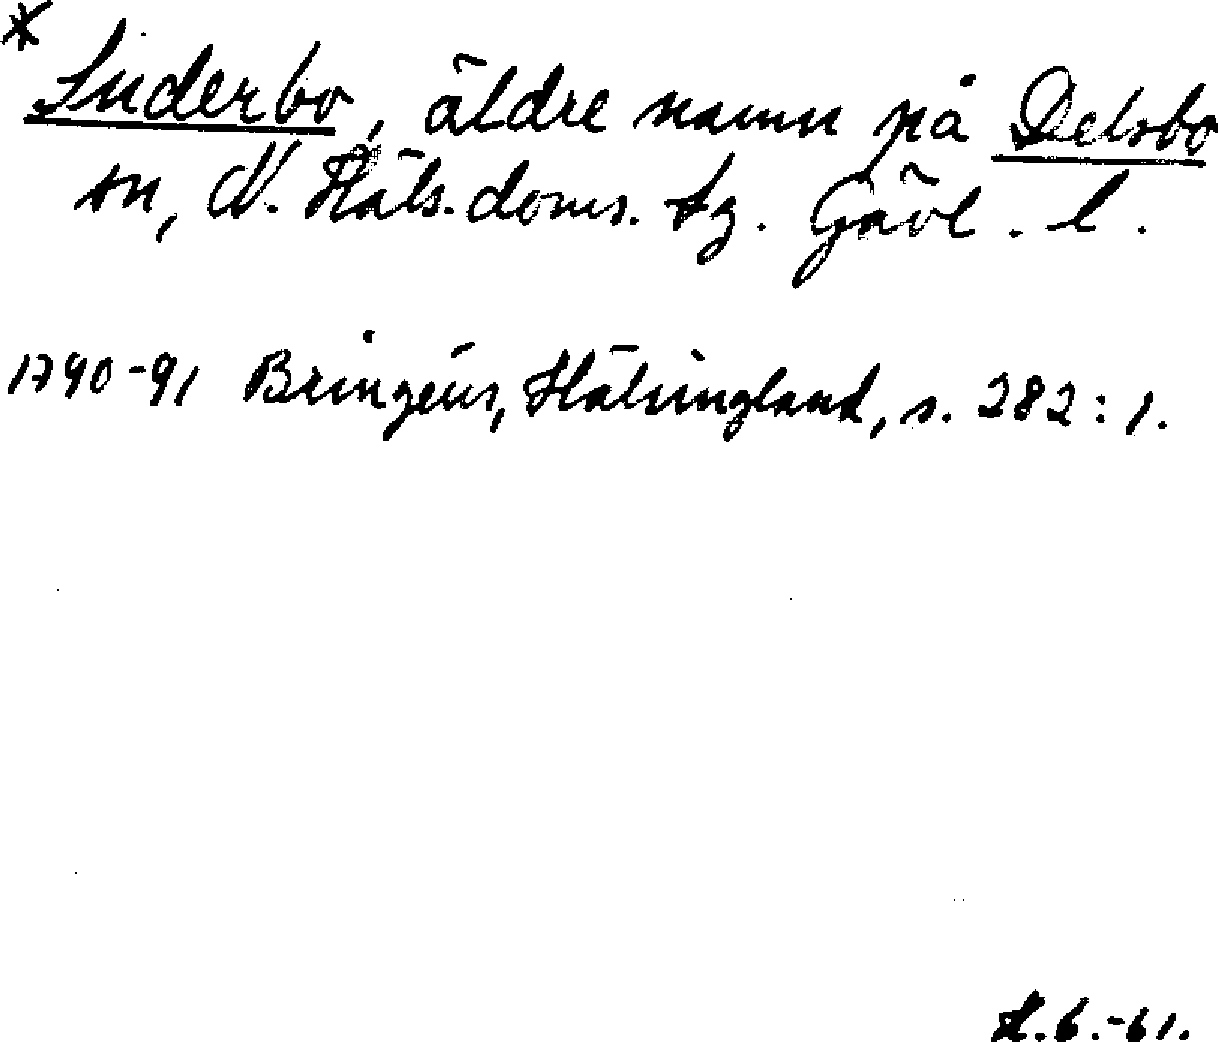 * Suderbo, äldre namn på Delsbo
sn, N. Häls. doms. tg. Gävl. l.
1790-91 Bringéus, Hälsingland, s. 282:1.
H.6.-61.